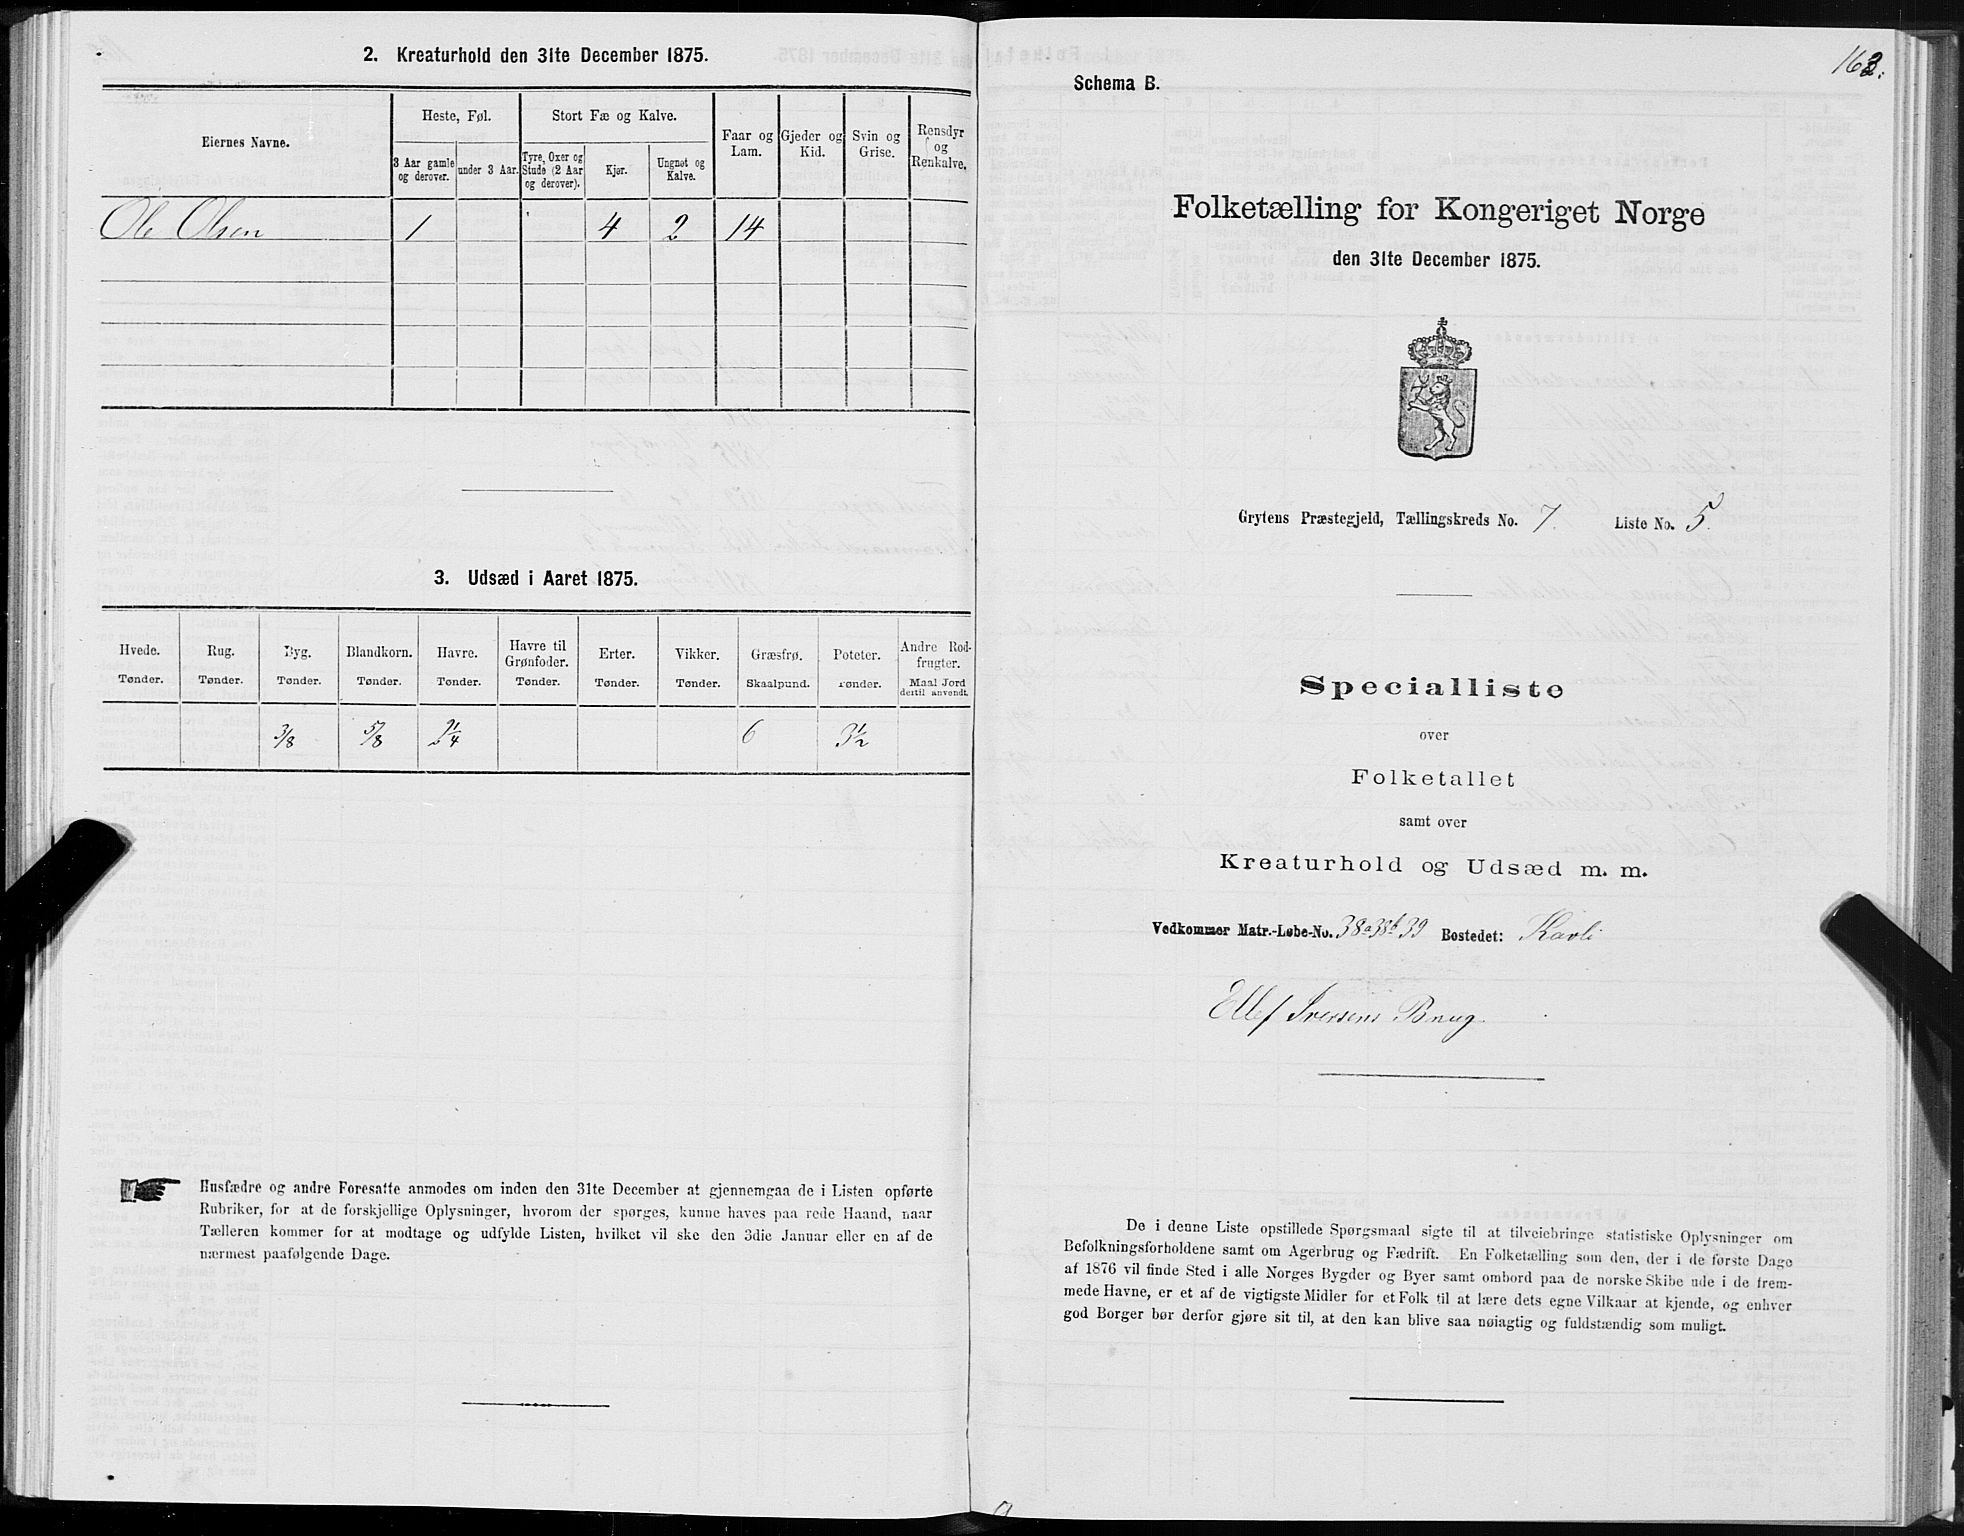 2. Kreaturhold den 31te December 1875.
Eiernes Navne.
Heste, Føl.
Stort Fæ og Kalve.
Faar og Lam.
Gjeder og Kid.
Svin og Grise.
Rensdyr og Renkalve.
3 Aar gamle og derover.
under 3 Aar.
Tyre, Oxer og Stude (2 Aar og derover).
Kjør.
Ungnøt og Kalve.
Ole Olsen 1 4 2 14
3. Udsæd i Aaret 1875.
Hvede. Tønder.
Rug. Tønder.
Byg. Tønder.
Blandkorn. Tønder.
Havre. Tønder.
Havre til Grønfoder. Tønder.
Erter. Tønder.
Vikker. Tønder.
Græsfrø. Skaalpund.
Poteter. Tønder.
Andre Rodfrugter. Maal Jord dertil anvendt.
3/8 5/8 2 1/4 6 3 1/2
Husfædre og andre Foresatte anmodes om inden den 31te December at gjennemgaa de i Listen opførte
Rubriker, for at de forskjellige Oplysninger, hvorom der spørges, kunne haves paa rede Haand, naar
Tælleren kommer for at modtage og udfylde Listen, hvilket vil ske den 3die Januar eller en af de
nærmest paafølgende Dage.
163.
Schema B.
Folketælling for Kongeriget Norge
den 31te December 1875.
Grytens Præstegjeld, Tællingskreds No. 7. Liste No. 5.
Specialliste
over
Folketallet
samt over
Kreaturhold og Udsæd m. m.
Vedkommer Matr.-Løbe-No. 38a 38b 39 Bostedet: Kavli
Ellef Iversens Brug
De i denne Liste opstillede Spørgsmaal sigte til at tilveiebringe statistiske Oplysninger om
Befolkningsforholdene samt om Agerbrug og Fædrift. En Folketælling som den, der i de første Dage
af 1876 vil finde Sted i alle Norges Bygder og Byer samt ombord paa de norske Skibe ude i de frem-
mede Havne, er et af de vigtigste Midler for et Folk til at lære dets egne Vilkaar at kjende, og enhver
god Borger bør derfor gjøre sit til, at den kan blive saa nøiagtig og fuldstændig som muligt.